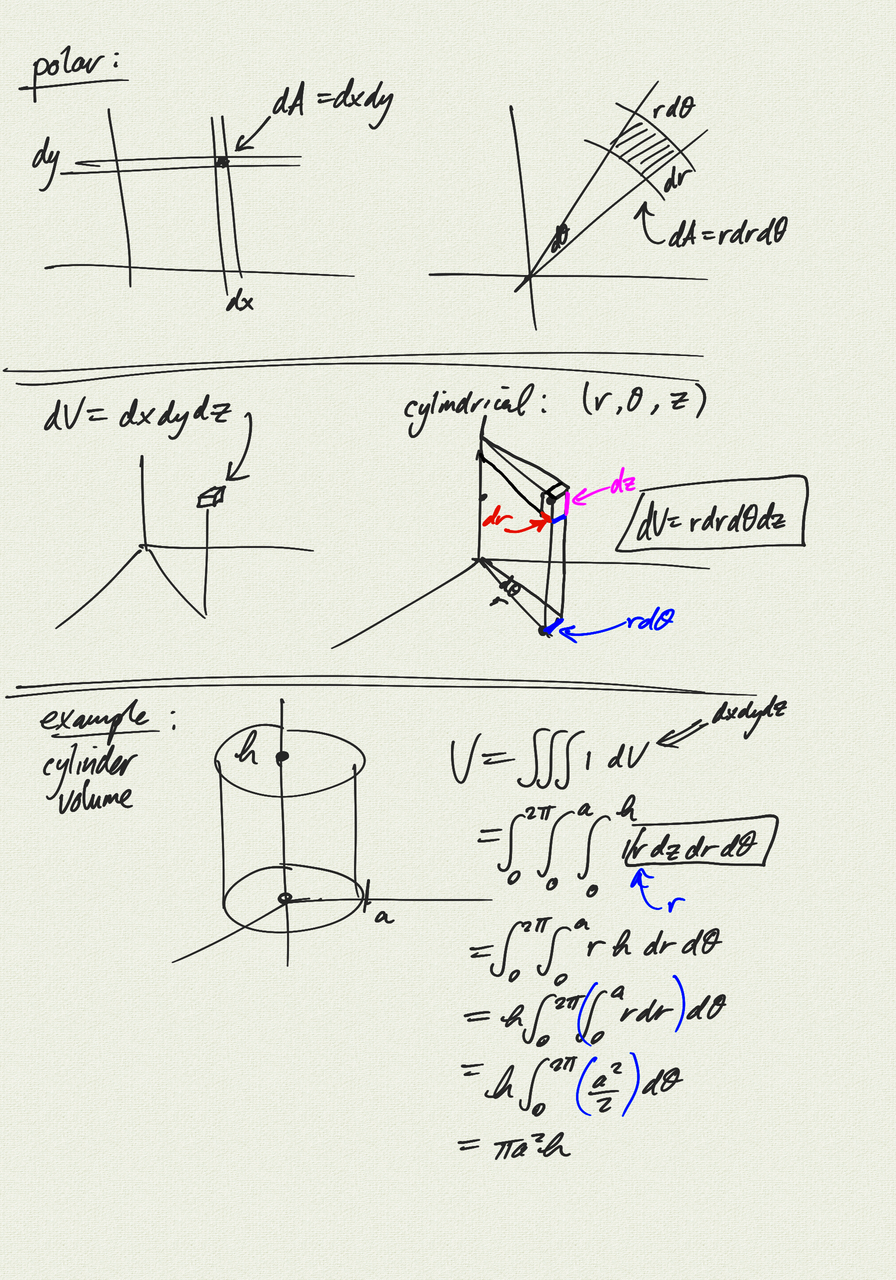 polar:
dA = dxdy
dy
dx
rdθ
dr
dθ
dA = rdrdθ
dV = dxdydz
cylindrical: (r, θ, z)
dz
dr
dV = rdrdθdz
dθ
r
rdθ
example:
cylinder
volume
h
a
dxdydz
V = ∭ 1 dV
= ∫₀^2π ∫₀^a ∫₀^h 1 r dz dr dθ
r
= ∫₀^2π ∫₀^a r h dr dθ
= h ∫₀^2π (∫₀^a rdr) dθ
= h ∫₀^2π (a²/2) dθ
= πa²h